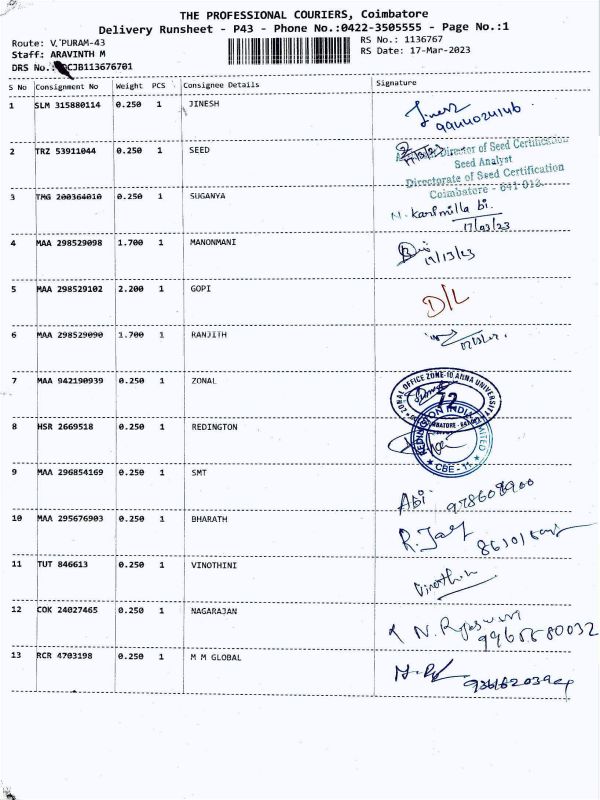 THE PROFESSIONAL COURIERS, Coimbatore
Delivery Runsheet - P43 - Phone No.:0422-3505555 - Page No.:1
Route: V.PURAM-43 RS No.: 1136767
Staff: ARAVINTH M RS Date: 17-Mar-2023
DRS No.: CJB113676701
S No Consignment No Weight PCS Consignee Details Signature
1 SLM 315880114 0.250 1 JINESH
2 TRZ 53911044 0.250 1 SEED
17/3/23
Director of Seed Certification
Seed Analyst
Directorate of Seed Certification
Coimbatore - 641 013.
3 TMG 200364010 0.250 1 SUGANYA
N. Karimilla bi.
17/03/23
4 MAA 298529098 1.700 1 MANONMANI
5 MAA 298529102 2.200 1 GOPI D/L
6 MAA 298529090 1.700 1 RANJITH
7 MAA 942190939 0.250 1 ZONAL
ZONAL OFFICE ZONE-10 ANNA UNIVERSITY
12
8 HSR 2669518 0.250 1 REDINGTON
REDINGTON INDIA LIMITED
★ CBE - 11 ★
9 MAA 296854169 0.250 1 SMT
Abi
10 MAA 295676903 0.250 1 BHARATH
11 TUT 846613 0.250 1 VINOTHINI
Vinothini
12 COK 24027465 0.250 1 NAGARAJAN
13 RCR 4703198 0.250 1 M M GLOBAL